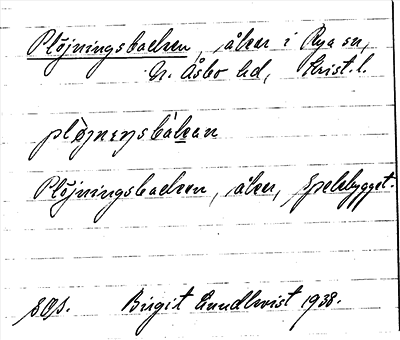 Plöjningsbacken, åker i Rya sn,
N. Åsbo hd, Krist. l.
Plöjningsbacken, åker, Spelebygget.
Birgit Lundkvist 1938.